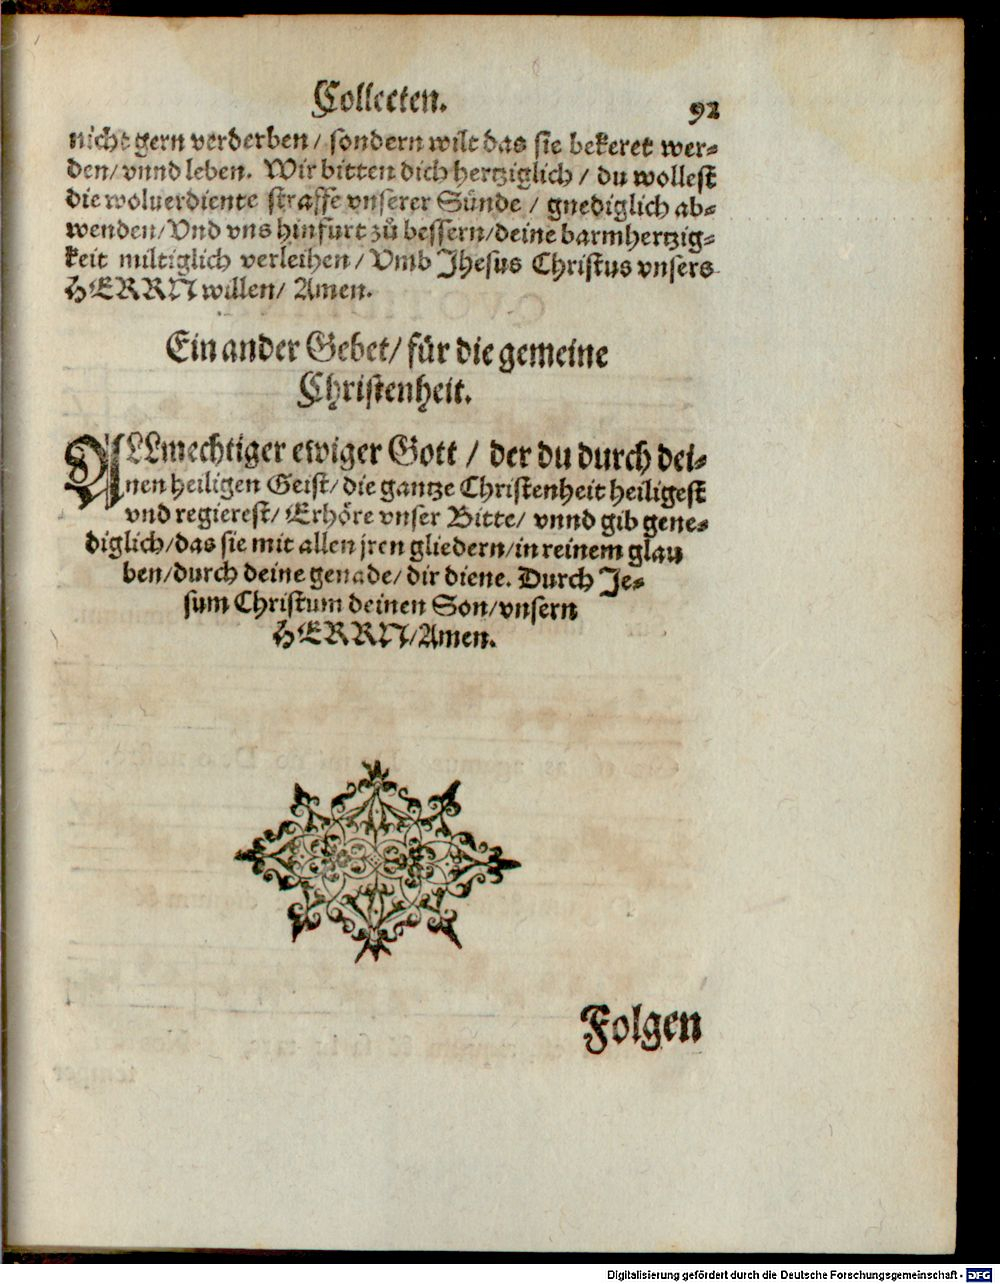 Collecten. 92
nicht gern verderben / sondern wilt das sie bekeret wer-
den / vnnd leben. Wir bitten dich hertziglich / du wollest
die woluerdiente straffe vnserer Sünde / gnediglich ab-
wenden / Vnd vns hinfurt zů bessern / deine barmhertzig-
keit miltiglich verleihen / Vmb Jhesus Christus vnsers
HERRN willen / Amen.
Ein ander Gebet / für die gemeine
Christenheit.
ALLmechtiger ewiger Gott / der du durch dei-
nen heiligen Geist / die gantze Christenheit heiligest
vnd regierest / Erhöre vnser Bitte / vnnd gib gene-
diglich / das sie mit allen jren gliedern / in reinem glau
ben / durch deine genade / dir diene. Durch Je-
sum Christum deinen Son / vnsern
HERRN / Amen.
Folgen
Digitalisierung gefördert durch die Deutsche Forschungsgemeinschaft - DFG